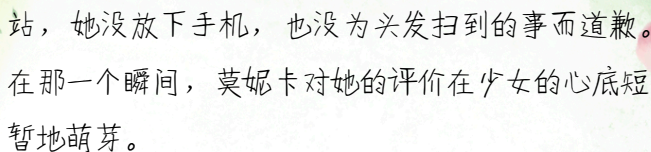 站，她没放下手机，也没为头发扫到的事而道歉。
在那一个瞬间，莫妮卡对她的评价在少女的心底短
暂地萌芽。